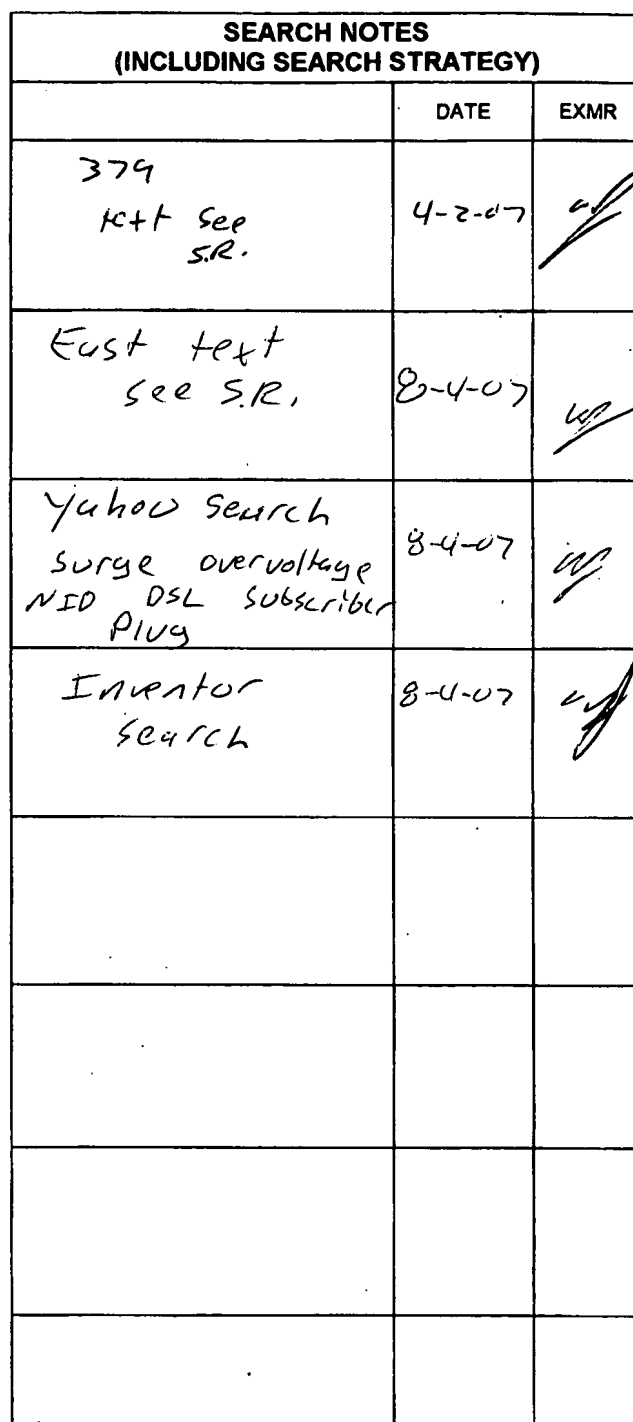 SEARCH NOTES
(INCLUDING SEARCH STRATEGY)
DATE EXMR
379
see
S.R.
4-2-07
East text
see S.R.
8-4-07
Yahoo Search
Surge overvoltage
NID DSL Subscriber
Plug
8-4-07
Inventor
Search
8-4-07